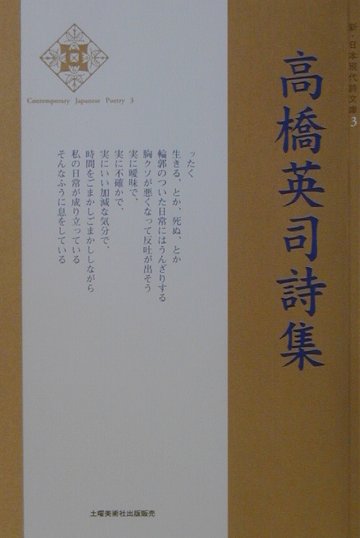 新・日本現代詩文庫 3
高橋英司詩集
Contemporary Japanese Poetry 3
ったく
生きる、とか、死ぬ、とか
輪郭のついた日常にはうんざりする
胸クソが悪くなって反吐が出そう
実に曖昧で、
実に不確かで、
実にいい加減な気分で、
時間をごまかしごまかししながら
私の日常が成り立っている
そんなふうに息をしている
土曜美術社出版販売